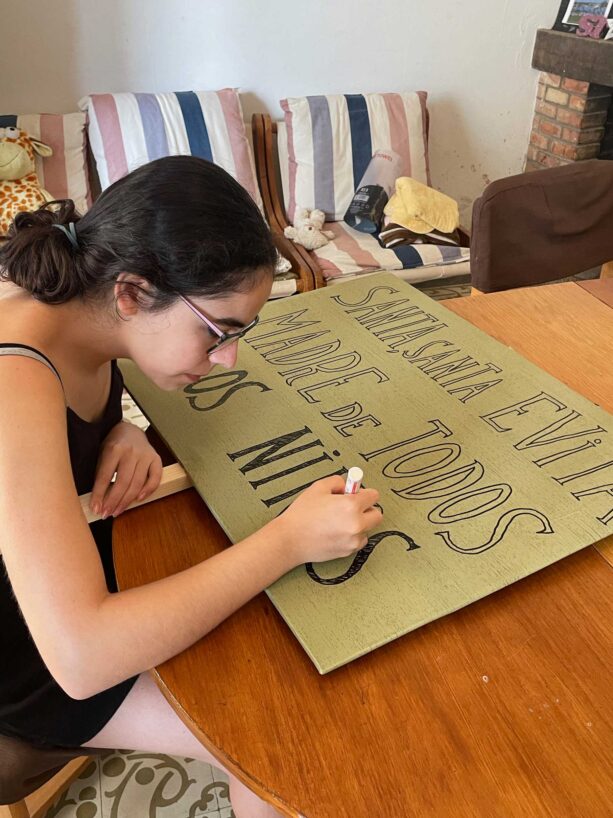 SANTA, SANTA EVITA
MADRE DE TODOS
LOS NIÑOS